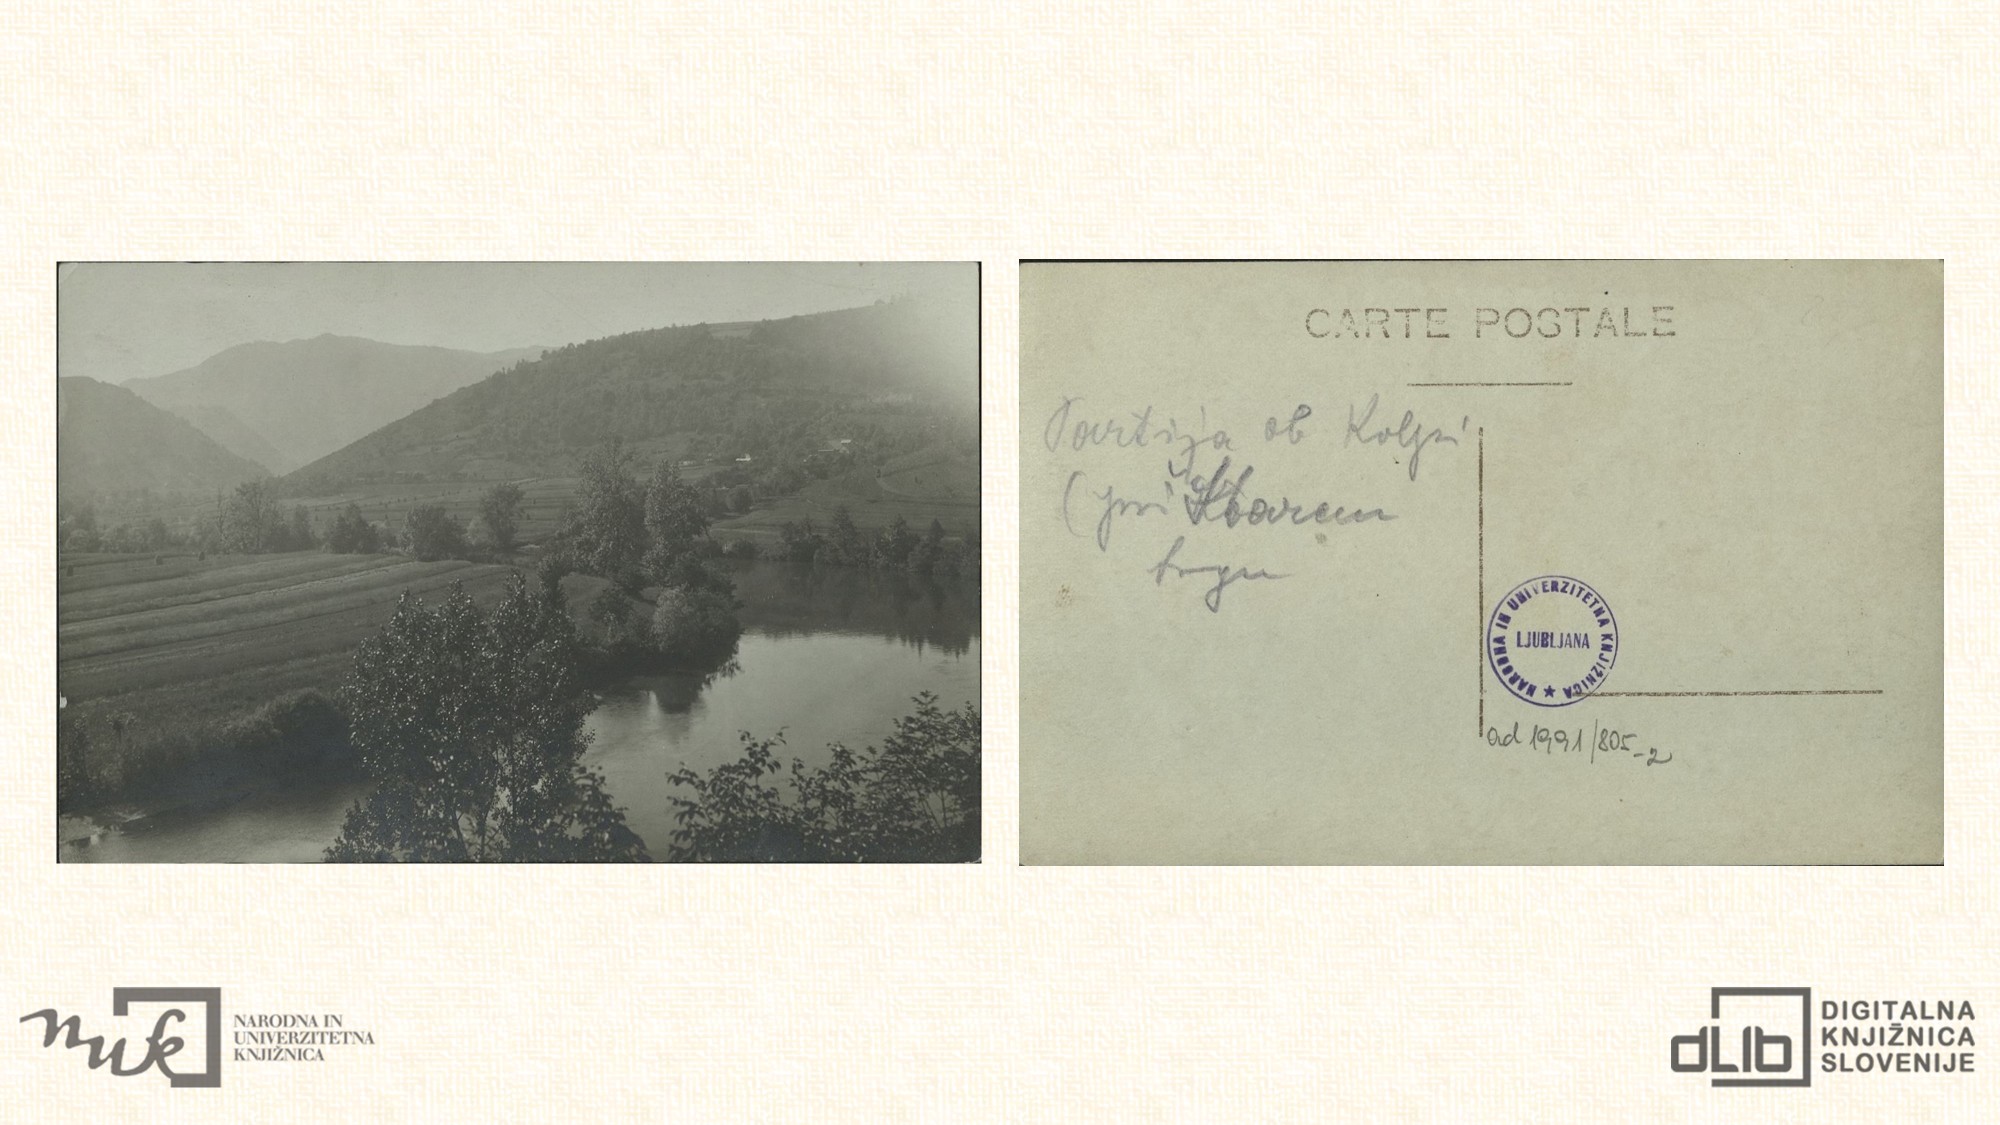 CARTE POSTALE
Partija ob Kolpi
(pri Starem
trgu
NARODNA IN UNIVERZITETNA KNJIŽNICA
LJUBLJANA
ad 1991/805-2
nuk
NARODNA IN
UNIVERZITETNA
KNJIŽNICA
dLib
DIGITALNA
KNJIŽNICA
SLOVENIJE